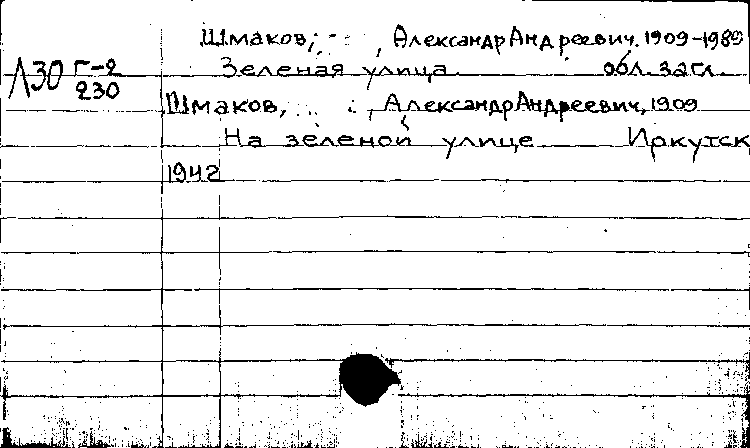 Шмаков, Александр Андреевич. 1909-1989
Зеленая улица обл. загл.
Л30 Г-2
230
Шмаков, Александр Андреевич, 1909
На зеленой улице Иркутск
1942